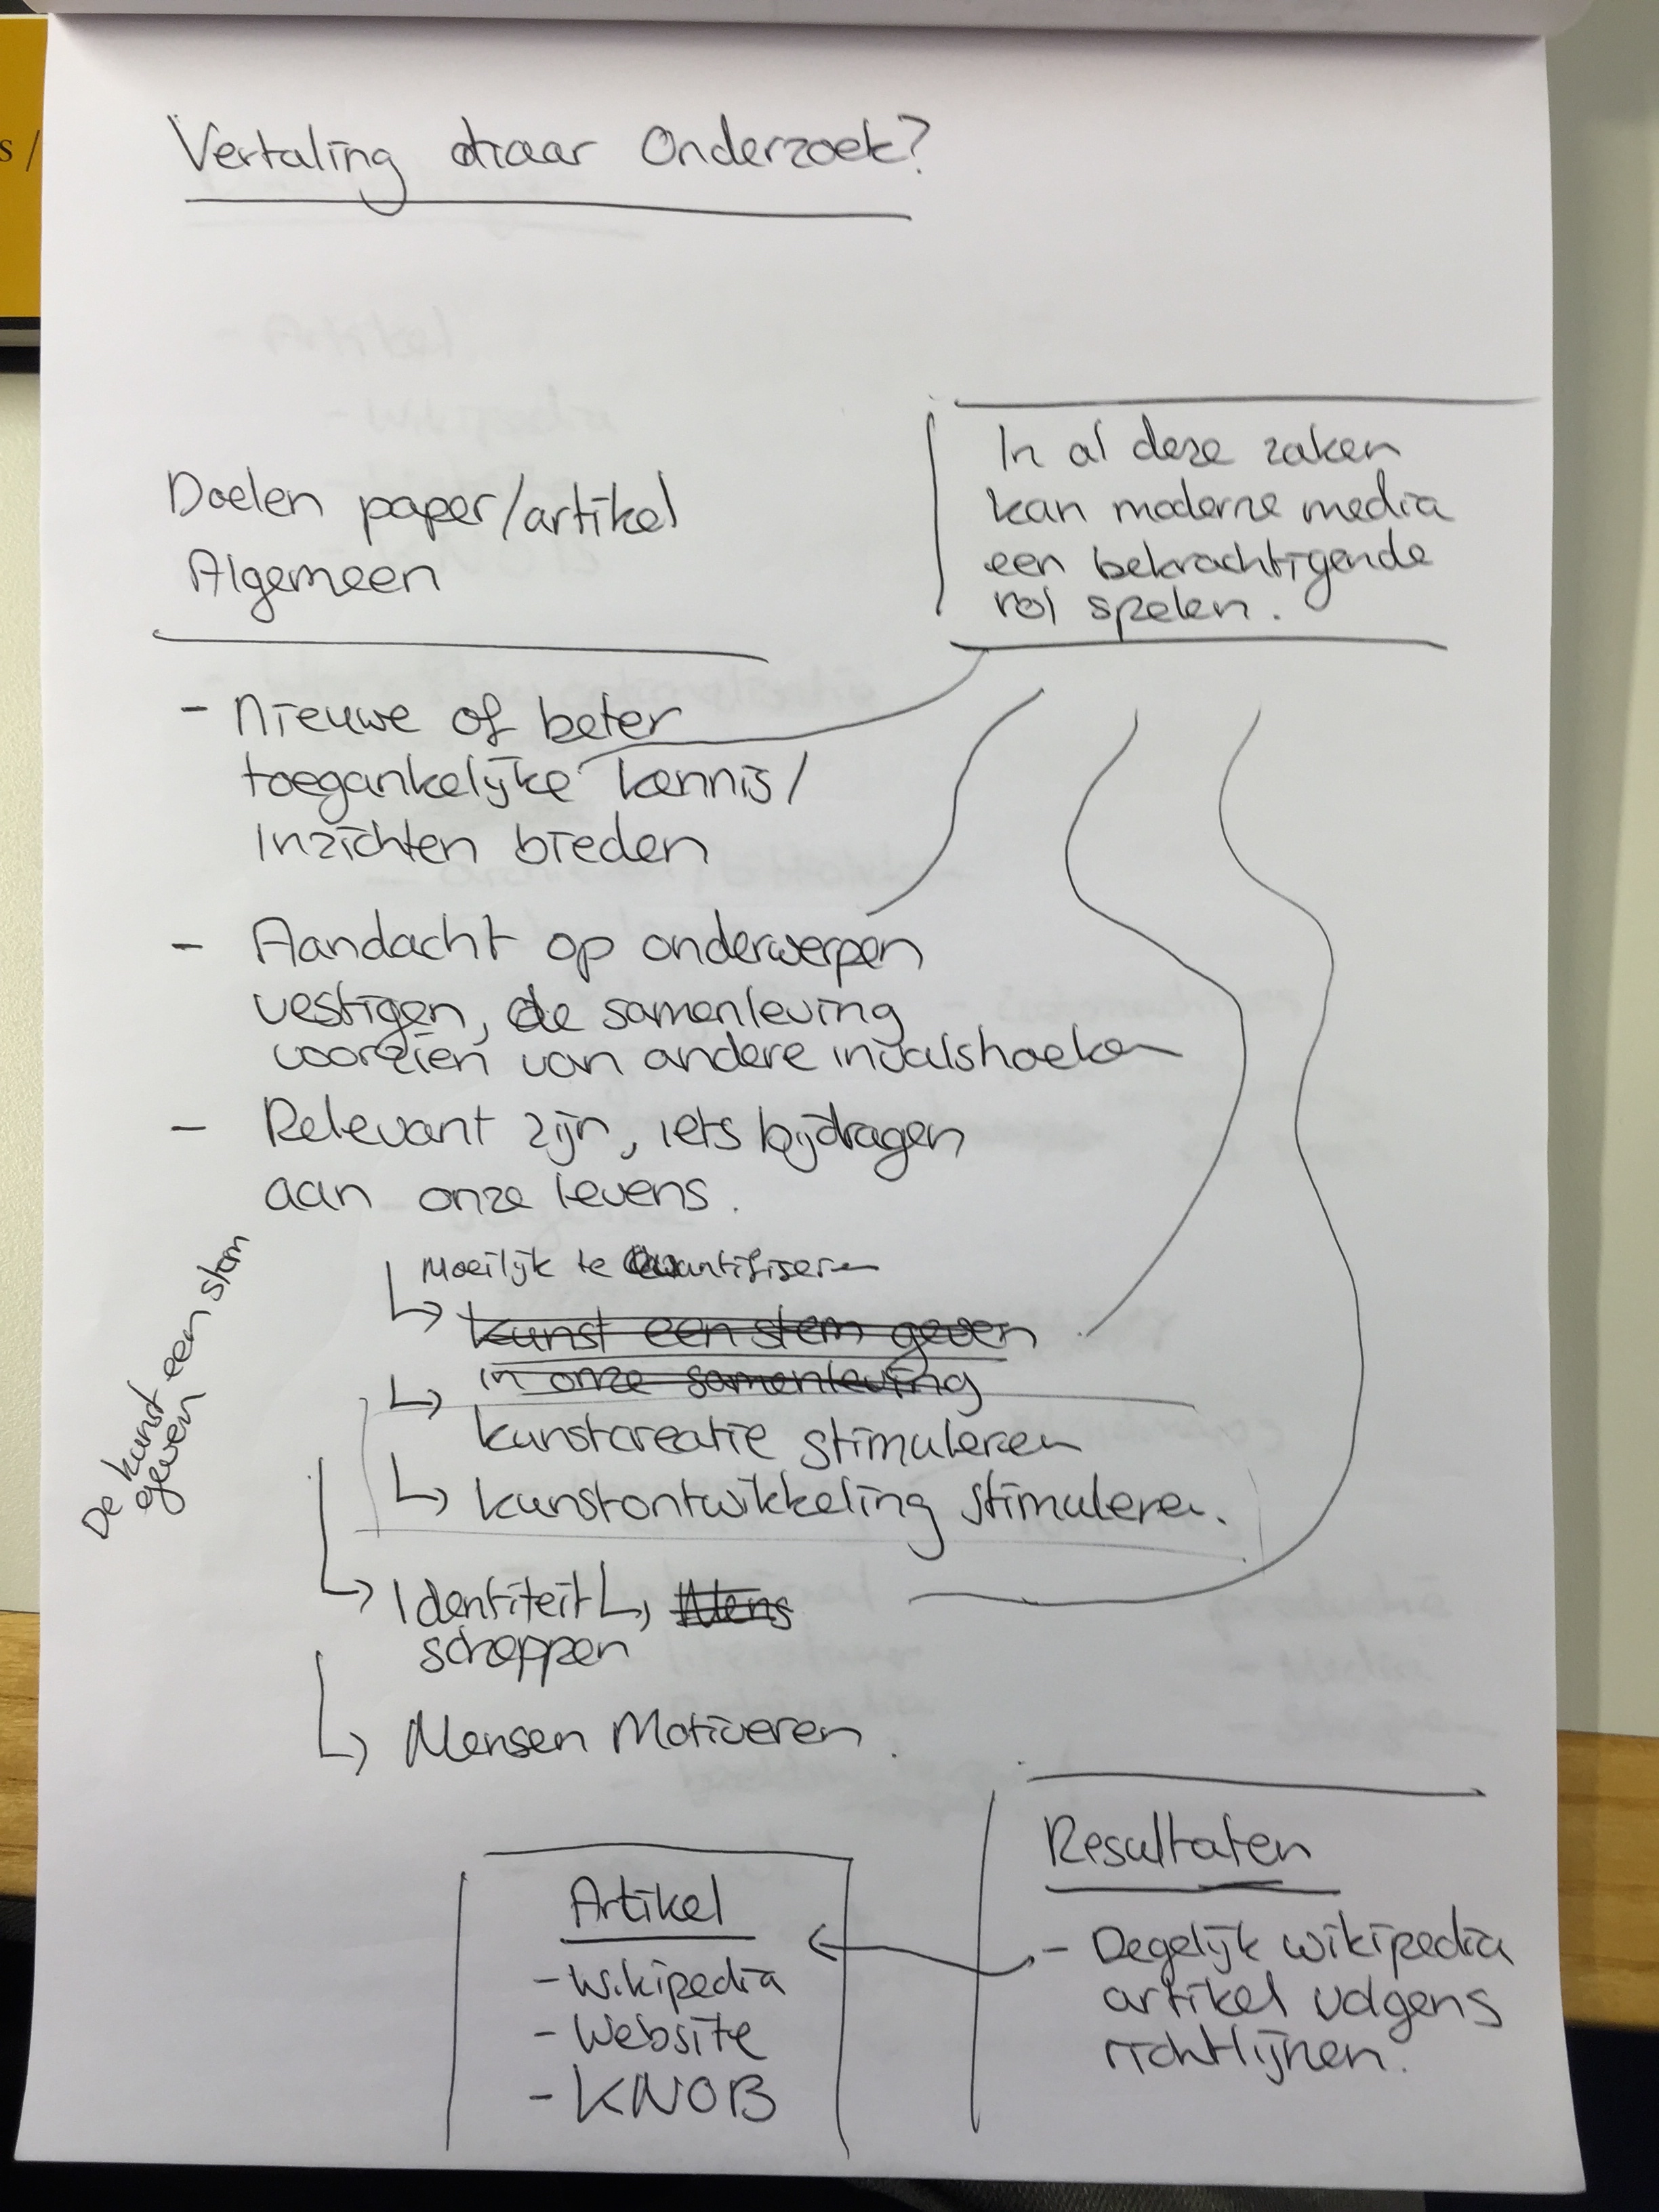 Vertaling naar Onderzoek?
In al deze zaken
kan moderne media
een bekrachtigende
rol spelen.
Doelen paper/artikel
Algemeen
- Nieuwe of beter
toegankelijke kennis/
inzichten bieden
- Aandacht op onderwerpen
vestigen, de samenleving
voorzien van andere invalshoeken
- Relevant zijn, iets bijdragen
aan onze levens.
Moeilijk te Quantifiseren
kunst een stem geven
in onze samenleving
kunstcreatie stimuleren
kunstontwikkeling stimuleren.
De kunst een stem
geven
Identiteit Mens
scheppen
Mensen Motiveren.
Artikel
- Wikipedia
- Website
- KNOB
Resultaten
- Degelijk wikipedia
artikel volgens
richtlijnen.